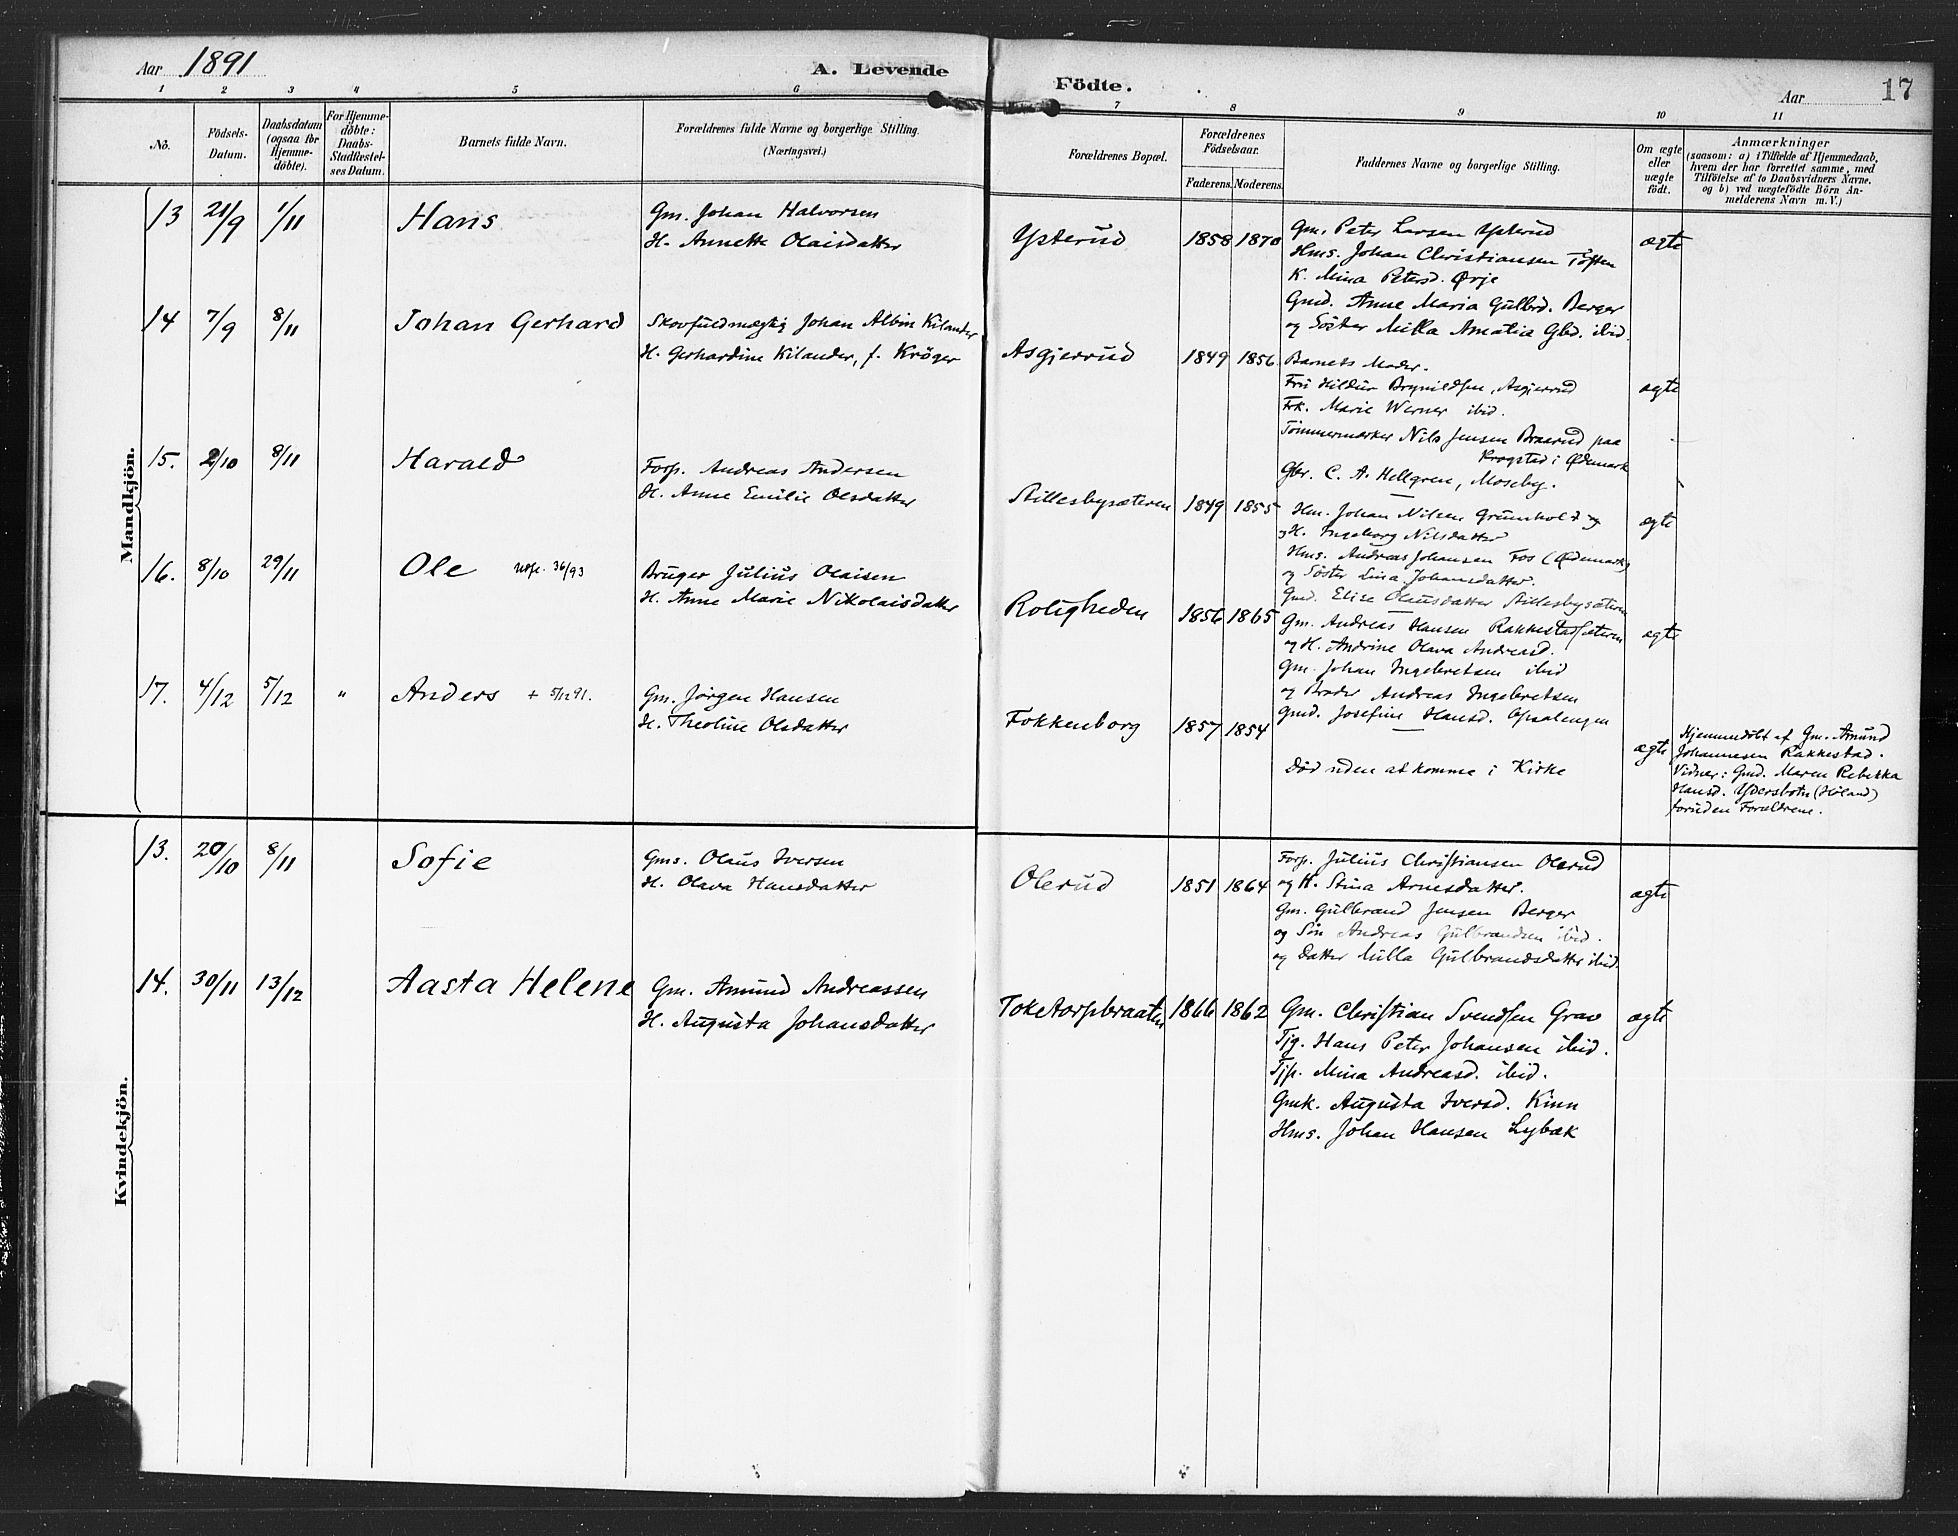 Aar 1891
A. Levende
Födte.
Aar
17
1 2 3 4 5 6 7 8 9 10 11
No.
Födsels-
Datum.
Daabsdatum
(ogsaa for
Hjemme-
döbte).
For Hjemme-
döbte:
Daabs-
Stadfæstel-
ses Datum.
Barnets fulde Navn.
Forældrenes fulde Navne og borgerlige Stilling.
(Næringsvei.)
Forældrenes Bopæl.
Forældrenes
Födselsaar.
Faderens. Moderens.
Faddernes Navne og borgerlige Stilling.
Om ægte
eller
uægte
födt.
Anmærkninger
(saasom: a) i Tilfælde af Hjemmedaab,
hvem der har forrettet samme, med
Tilföielse af to Daabsvidners Navne,
og b) ved uægtefödte Börn An-
melderens Navn m. V.)
Mandkjön.
13 21/9 1/11 Hans
Gm. Johan Halvorsen
H. Annette Olaisdatter
Ysterud 1858 1870
Gm. Peter Larsen Ysterud
Hms. Johan Christiansen Toften
K. Mina Petersd. Ørje
Gmd. Anne Maria Gulbrd. Berger
og Söster Milla Amalia Gbd. ibid.
ægte
14 7/9 8/11 Johan Gerhard
Skovfuldmægtig Johan Albin Kilander
H. Gerhardine Kilander, f. Kröger
Asgjerrud 1849 1856
Barnets Moder.
Fru Hildur Brynildsen, Asgjerrud
Frk. Marie Werner ibid.
Tömmermærker Nils Jensen Braarud paa
Krogstad i Ødemark
Gbr. C. A. Hellgren, Moseby.
ægte
15. 2/10 8/11 Harald
Forp. Andreas Andersen
H. Anne Emilie Olsdatter
Stillesbysæteren 1849 1855
Hm. Johan Nilsen Grumholt og
H. Ingeborg Nilsdatter
Hms. Andreas Johansen Fos (Ødemark)
og Söster Lina Johansdatter.
Gmd. Elise Olausdatter Stillesbysætern
ægte
16. 8/10 29/11 Ole 36/93
Bruger Julius Olaisen
H. Anne Marie Nikolaisdatter
Roligheden 1856 1865
Gm. Andreas Hansen Rakkestadsæteren
og H. Andrine Olava Andreasd.
Gm. Johan Ingebretsen ibid
og Broder Andreas Ingebretsen
Gmd. Josefine Hansd. Opsalengen
ægte
17. 4/12 5/12 " Anders + 5/12 91.
Gm. Jörgen Hansen
H. Theoline Olsdatter
Fokkenborg 1857 1854
Död uden at komme i Kirke
ægte
Hjemmedöbt af Gm. Amund
Johannesen Rakkestad.
Vidner: Gmd. Maren Rebekka
Hansd. Ydersbotn (Höland)
foruden Forældrene.
Kvindekjön.
13. 20/10 8/11 Sofie
Gms. Olaus Iversen
H. Olava Hansdatter
Olerud 1851 1864
Forp. Julius Christiansen Olerud
og H. Stina Arnesdatter.
Gm. Gulbrand Jensen Berger
og Sön Andreas Gulbrandsen ibid.
og Datter Milla Gulbrandsdatter ibid.
ægte
14. 30/11 13/12 Aasta Helene
Gm. Amund Andreassen
H. Augusta Johansdatter
Toketorpbraaten 1866 1862
Gm. Christian Svendsen Grav
Tjg. Hans Peter Johansen ibid.
Tjp. Mina Andreasd. ibid.
Gmk. Augusta Iversd. Kinn
Hms. Johan Hansen Lybæk
ægte